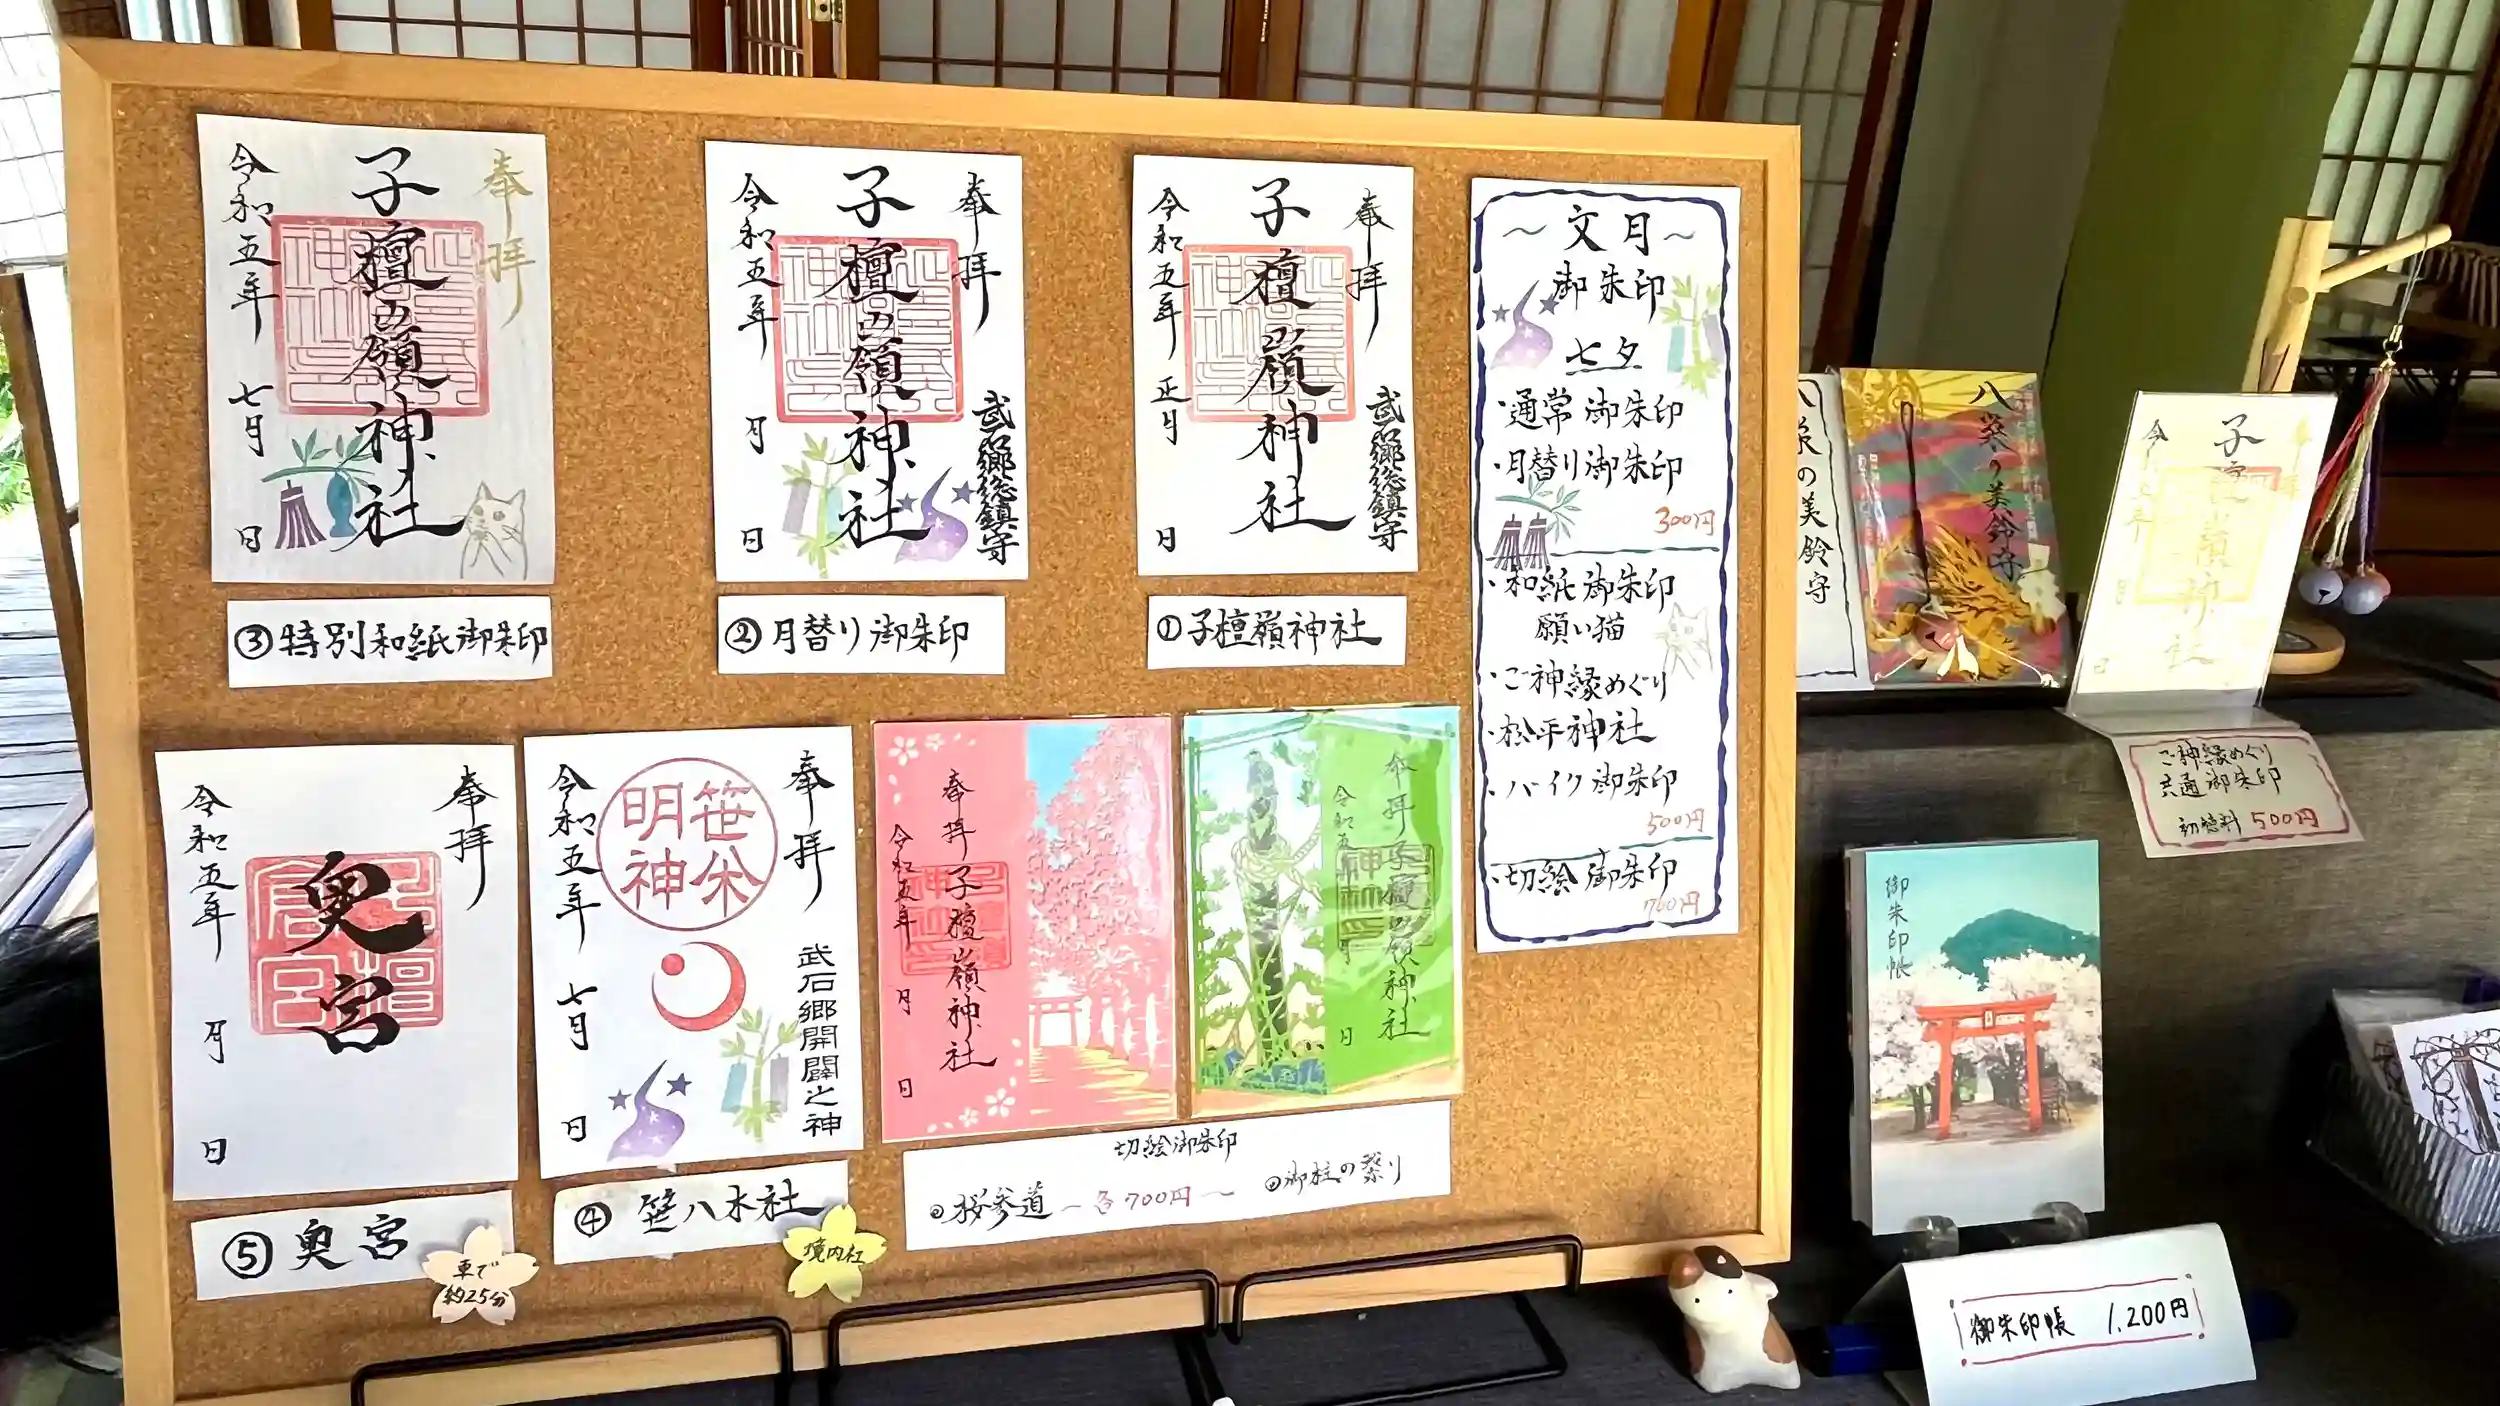 奉拝
子檀嶺神社
令和五年
七月
日
③特別和紙御朱印
奉拝
武石郷総鎮守
子檀嶺神社
令和五年
月
日
②月替り御朱印
奉拝
武石郷総鎮守
子檀嶺神社
令和五年
正月
日
①子檀嶺神社
〜文月〜
御朱印
七夕
・通常御朱印
・月替り御朱印
300円
・和紙御朱印
願い猫
・ご神縁めぐり
・松平神社
・バイク御朱印
500円
・切絵御朱印
700円
奉拝
奥宮
令和五年
月
日
⑤奥宮
車で
約25分
奉拝
武石郷開闢之神
笹
明神
令和五年
七月
日
④笹八木社
境内社
奉拝
子檀嶺神社
令和五年
月
日
奉拝
子檀嶺神社
令和五
月
日
切絵御朱印
桜参道
〜各700円〜
御柱の祭り
の美鈴守
八葵の美鈴守
子檀嶺神社
ご神縁めぐり
共通御朱印
初穂料 500円
御朱印帳
御朱印帳 1,200円